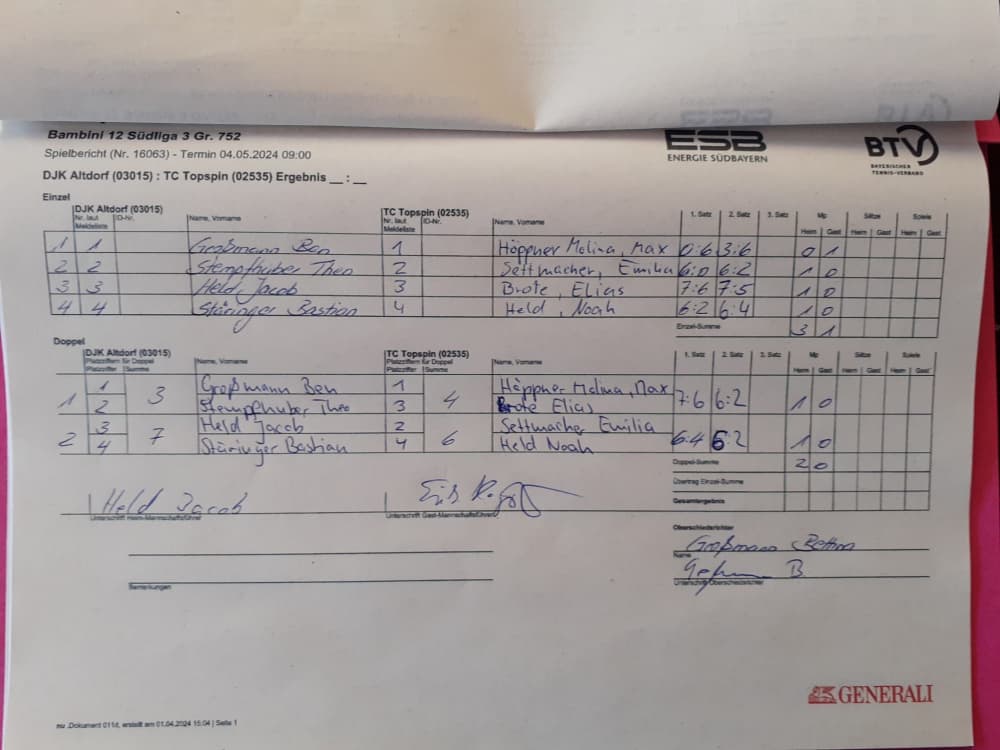 Bambini 12 Südliga 3 Gr. 752
ESB
ENERGIE SÜDBAYERN
BTV
BAYERISCHER
TENNIS-VERBAND
Spielbericht (Nr. 16063) - Termin 04.05.2024 09:00
DJK Altdorf (03015) : TC Topspin (02535) Ergebnis __ : __
Einzel
DJK Altdorf (03015) TC Topspin (02535) 1. Satz 2. Satz 3. Satz Mp Sätze Spiele
Nr. laut Meldeliste ID-Nr. Name, Vorname Nr. laut Meldeliste ID-Nr. Name, Vorname Heim Gast Heim Gast Heim Gast
1 1 Großmann Ben 1 Höppner Molina, Max 0:6 3:6 0 1
2 2 Stempfhuber Theo 2 Settmacher, Emilia 6:0 6:2 1 0
3 3 Held, Jacob 3 Brote, Elias 7:6 7:5 1 0
4 4 Stäringer Bastian 4 Held, Noah 6:2 6:4 1 0
Einzel-Summe 3 1
Doppel
DJK Altdorf (03015) TC Topspin (02535) 1. Satz 2. Satz 3. Satz Mp Sätze Spiele
Platzziffern für Doppel Platzziffern für Doppel
Platzziffer Summe Name, Vorname Platzziffer Summe Name, Vorname Heim Gast Heim Gast Heim Gast
1 1 3 Großmann Ben 1 4 Höppner Molina, Max 7:6 6:2 1 0
2 Stempfhuber Theo 3 Brote Elias
2 3 7 Held Jacob 2 6 Settmacher Emilia 6:4 6:2 1 0
4 Stäringer Bastian 4 Held Noah
Doppel-Summe 2 0
Übertrag Einzel-Summe
Gesamtergebnis
Held Jacob
Unterschrift Heim-Mannschaftsführer Unterschrift Gast-Mannschaftsführer
Oberschiedsrichter
Großmann Bettina
Name
B
Unterschrift Oberschiedsrichter
Bemerkungen
GENERALI
nu .Dokument 0118, erstellt am 01.04.2024 15:04 | Seite 1